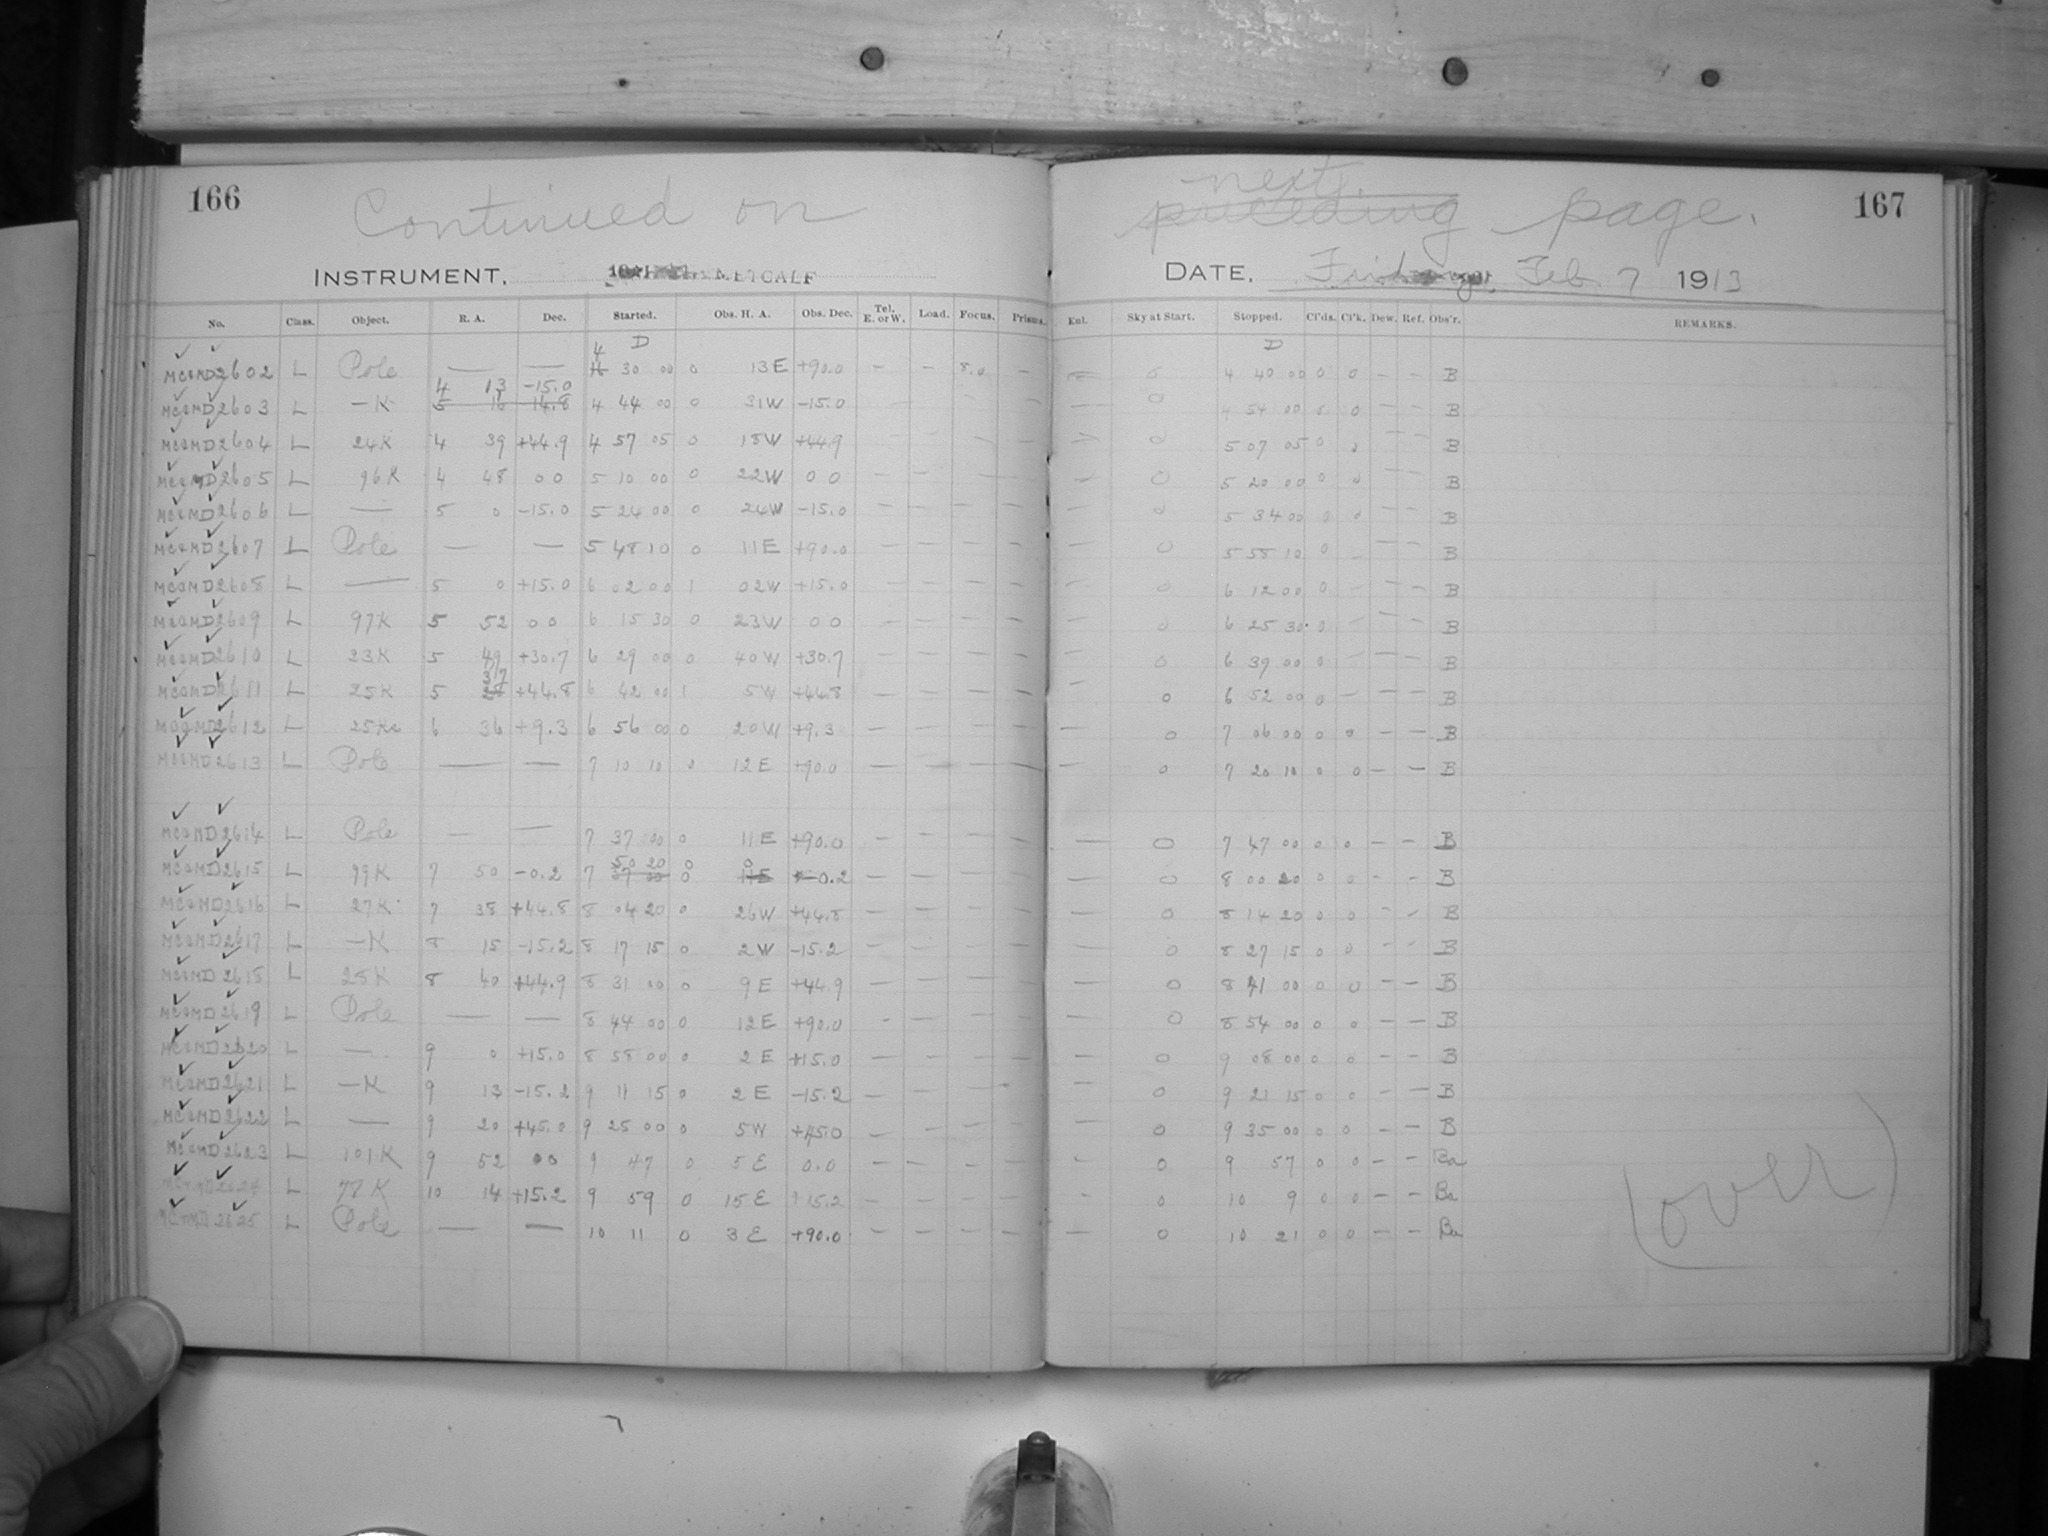 166 Continued on next preceding page. 167
INSTRUMENT, METCALF DATE, Friday, Feb. 7 1913
No. Class. Object. R. A. Dec. Started. Obs. H. A. Obs. Dec. Tel. E. or W. Load. Focus. Prisms. Eul. Sky at Start. Stopped. Cl'ds. Cl'k. Dew. Ref. Obs'r. REMARKS.
D D
MC0MD2602 L Pole — — 4 30 00 0 13 E +90.0 – – 8.0 – – 0 4 40 00 0 0 – – B
4 13 -15.0
MC0MD2603 L –K 5 16 14.8 4 44 00 0 31W -15.0 – – 0 4 54 00 0 0 – – B
MC0MD2604 L 24K 4 39 +44.9 4 57 05 0 18W +44.9 – – – – – 0 5 07 05 0 0 – – B
MC0MD2605 L 96K 4 48 0 0 5 10 00 0 22W 0 0 – – – – – 0 5 20 00 0 0 – – B
MC0MD2606 L — 5 0 -15.0 5 24 00 0 24W -15.0 – – – – – 0 5 34 00 0 0 – – B
MC0MD2607 L Pole — — 5 48 10 0 11E +90.0 – – – – – 0 5 58 10 0 – – – B
MC0MD2608 L — 5 0 +15.0 6 02 00 1 02W +15.0 – – – – – 0 6 12 00 0 – – – B
MC0MD2609 L 97K 5 52 0 0 6 15 30 0 23W 0 0 – – – – – 0 6 25 30 0 – – – B
MC0MD2610 L 23K 5 49 +30.7 6 29 00 0 40W +30.7 – – – – – 0 6 39 00 0 – – – B
MC0MD2611 L 25K 5 37 +44.8 6 42 00 1 5W +44.8 – – – – – 0 6 52 00 0 – – – B
MC0MD2612 L 25Ka 6 36 +9.3 6 56 00 0 20W +9.3 – – – – – 0 7 06 00 0 0 – – B
MC0MD2613 L Pole — — 7 10 10 0 12 E +90.0 – – – – – 0 7 20 10 0 0 – – B
MC0MD2614 L Pole — — 7 37 00 0 11 E +90.0 – – – – – 0 7 47 00 0 0 – – B
50 20 0 0
MC0MD2615 L 99K 7 50 -0.2 7 37 00 0 11E -0.2 – – – – – 0 8 00 20 0 0 – – B
MC0MD2616 L 27K 7 38 +44.8 8 04 20 0 26W +44.8 – – – – – 0 8 14 20 0 0 – – B
MC0MD2617 L –K 8 15 -15.2 8 17 15 0 2W -15.2 – – – – – 0 8 27 15 0 0 – – B
MC0MD2618 L 28K 8 40 +44.9 8 31 00 0 9 E +44.9 – – – – – 0 8 41 00 0 0 – – B
MC0MD2619 L Pole — — 8 44 00 0 12 E +90.0 – – – – – 0 8 54 00 0 0 – – B
MC0MD2620 L — 9 0 +15.0 8 58 00 0 2 E +15.0 – – – – – 0 9 08 00 0 0 – – B
MC0MD2621 L –K 9 13 -15.2 9 11 15 0 2 E -15.2 – – – – – 0 9 21 15 0 0 – – B
MC0MD2622 L — 9 20 +45.0 9 25 00 0 5W +45.0 – – – – – 0 9 35 00 0 0 – – B
MC0MD2623 L 101K 9 52 0 0 9 47 0 5 E 0.0 – – – – – 0 9 57 0 0 – – Ba
MC0MD2624 L 78K 10 14 +15.2 9 59 0 15 E +15.2 – – – – – 0 10 9 0 0 – – Ba
MC0MD2625 L Pole — — 10 11 0 3 E +90.0 – – – – – 0 10 21 0 0 – – Ba
(over)